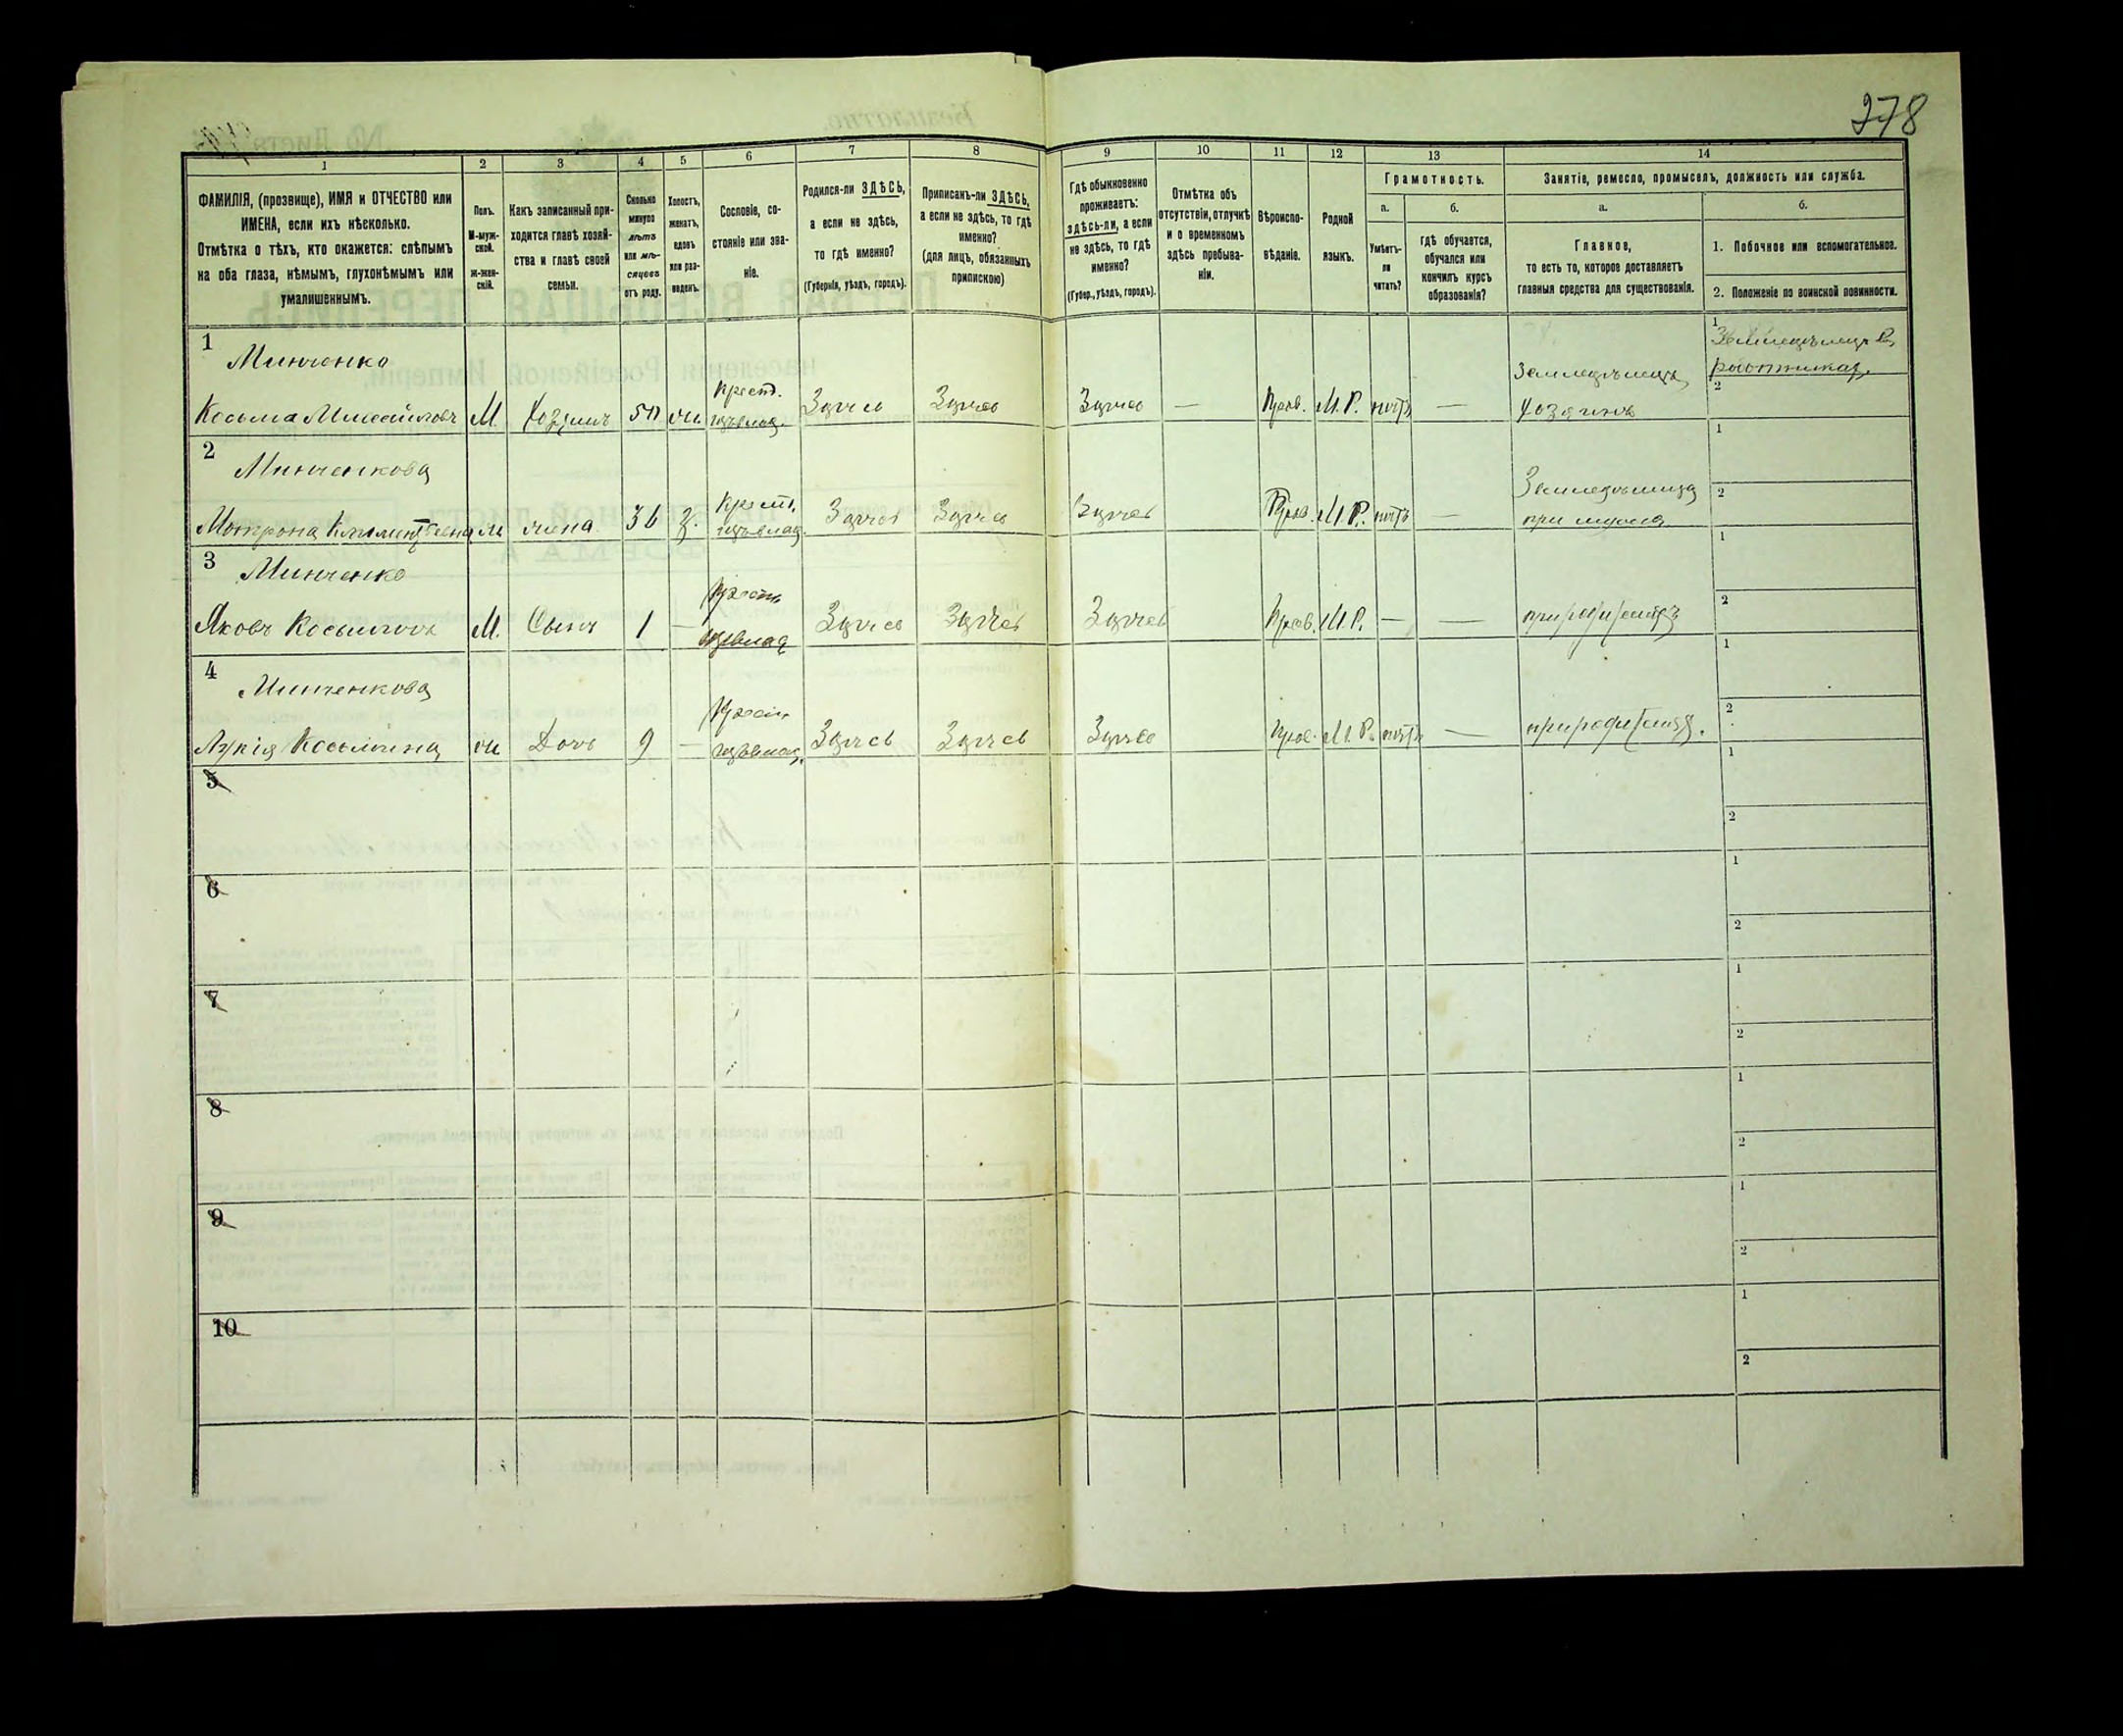 278
1 2 3 4 5 6 7 8 9 10 11 12 13 14
ФАМИЛІЯ, (прозвище), ИМЯ и ОТЧЕСТВО или
ИМЕНА, если ихъ нѣсколько.
Отмѣтка о тѣхъ, кто окажется: слѣпымъ
на оба глаза, нѣмымъ, глухонѣмымъ или
умалишеннымъ.
Полъ.
М-муж-
ской.
ж-жен-
скій.
Какъ записанный при-
ходится главѣ хозяй-
ства и главѣ своей
семьи.
Сколько
минуло
лѣтъ
или мѣ-
сяцевъ
отъ роду.
Холостъ,
женатъ,
вдовъ
или раз-
веденъ.
Сословіе, со-
стояніе или зва-
ніе.
Родился-ли ЗДѢСЬ,
а если не здѣсь,
то гдѣ именно?
(Губернія, уѣздъ, городъ).
Приписанъ-ли ЗДѢСЬ,
а если не здѣсь, то гдѣ
именно?
(для лицъ, обязанныхъ
припискою)
Гдѣ обыкновенно
проживаетъ:
здѣсь-ли, а если
не здѣсь, то гдѣ
именно?
(Губер., уѣздъ, городъ).
Отмѣтка объ
отсутствіи, отлучкѣ
и о временномъ
здѣсь пребыва-
ніи.
Вѣроиспо-
вѣданіе.
Родной
языкъ.
Грамотность.
а.
Умѣетъ-
ли
читать?
б.
Гдѣ обучается,
обучался или
кончилъ курсъ
образованія?
Занятіе, ремесло, промыселъ, должность или служба.
а.
Главное,
то есть то, которое доставляетъ
главныя средства для существованія.
б.
1. Побочное или вспомогательное.
2. Положеніе по воинской повинности.
1
Минченко
Косьма М. Хозяинъ 50 ж. Крест. Здѣсь Здѣсь Здѣсь — Прав. М.Р. нѣтъ —
Хозяинъ
1
2
2
Минченкова
Мотрона ж жена 36 з. Крест. Здѣсь Здѣсь Здѣсь Прав. М.Р. нѣтъ —
при мужѣ
1
2
3
Минченко
Яковъ Косьмовъ М. Сынъ 1 — Крест. Здѣсь Здѣсь Здѣсь Прав. М.Р. — — при родителяхъ
1
2
4
Минченкова
Лукія Косьмина ж Дочь 9 — Крест. Здѣсь Здѣсь Здѣсь Прав. М.Р. нѣтъ — при родителяхъ.
1
2
5
1
2
6
1
2
7
1
2
8
1
2
9
1
2
10
1
2